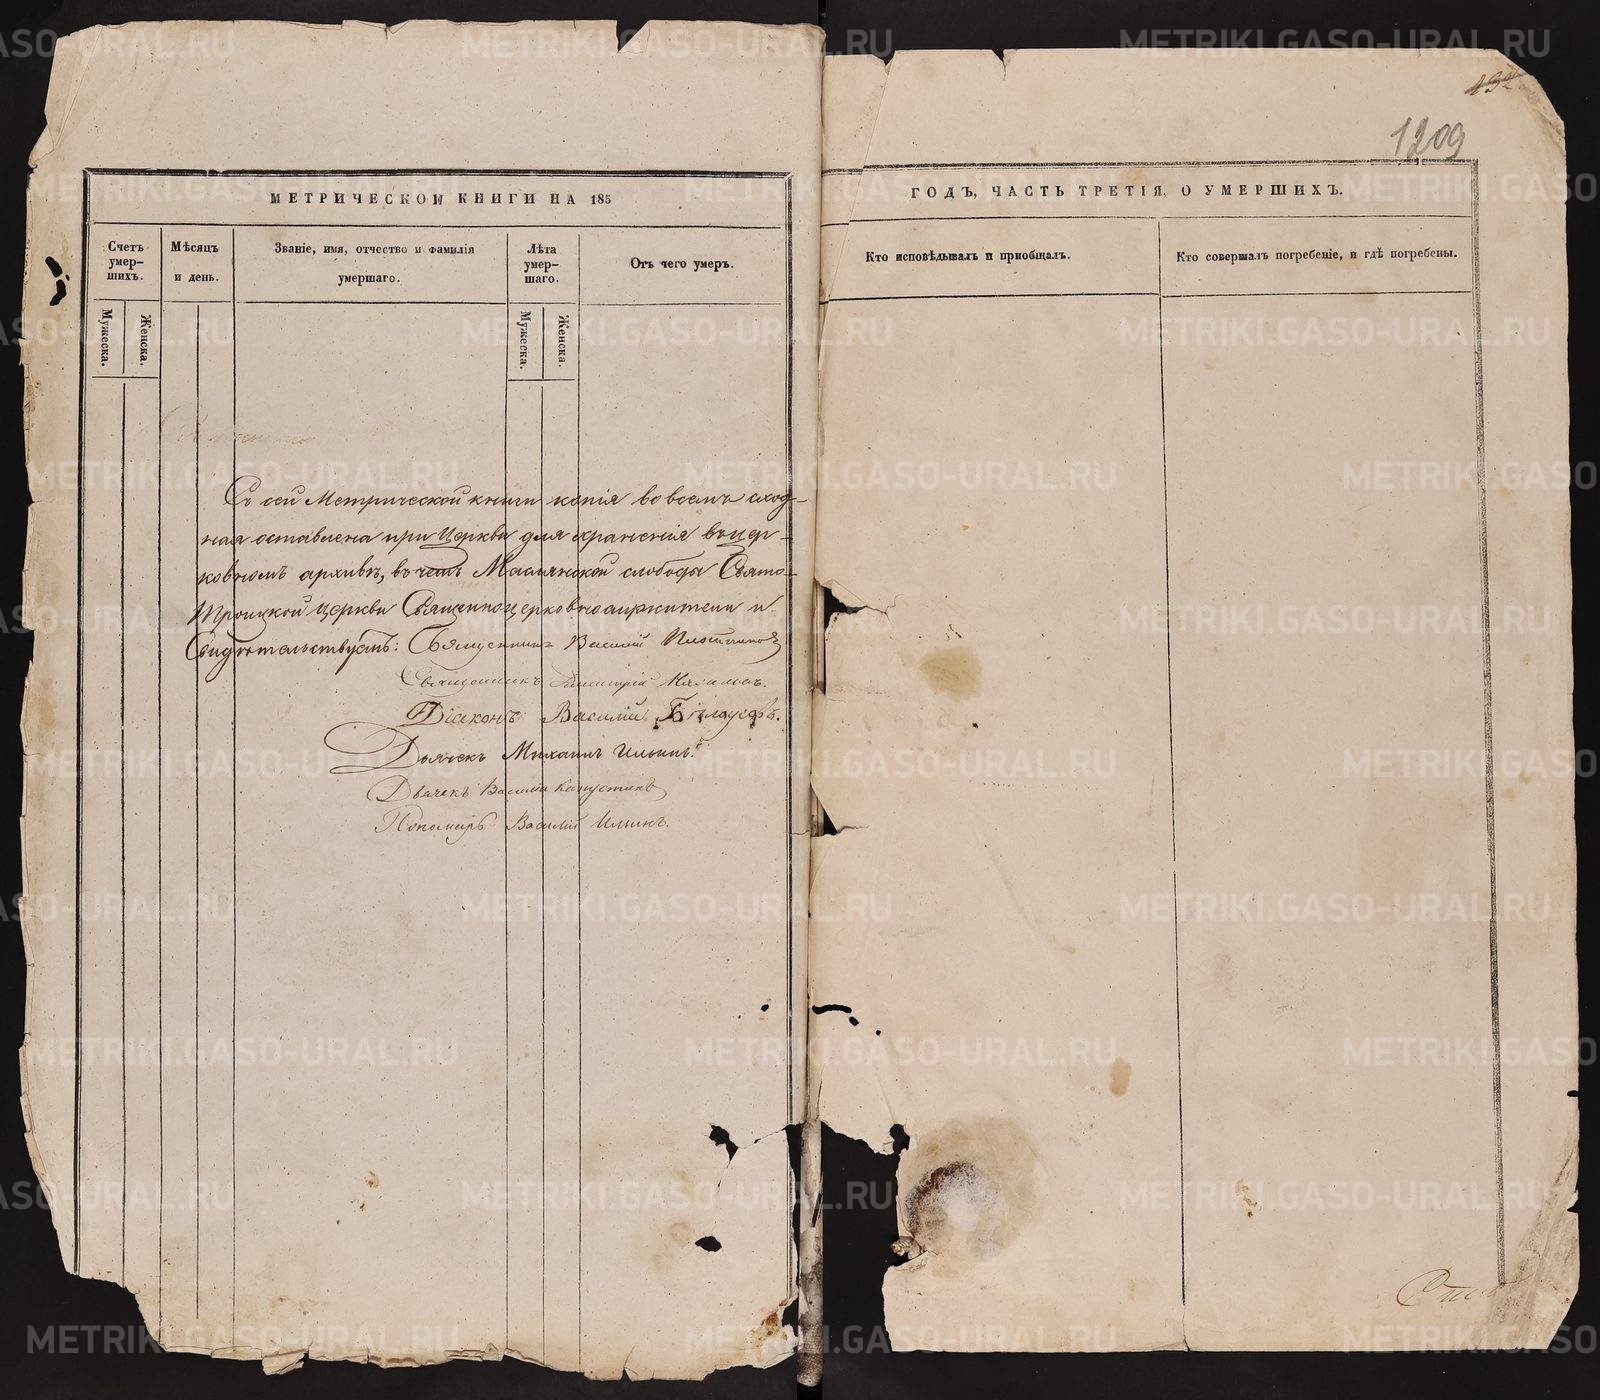 МЕТРИЧЕСКОЙ КНИГИ НА 185
Счетъ умер-шихъ.
Мужеска.
Женска.
Мѣсяцъ и день.
Званіе, имя, отчество и фамилія умершаго.
Лѣта умер-шаго.
Мужеска.
Женска.
Отъ чего умеръ.
Съ сей Метрической книги копія во всемъ сход-
ная оставлена при Церкви для храненія въ цер-
ковномъ архивѣ, въ чемъ Маслянской слободы Свято-
Троицкой Церкви Священноцерковнослужители и
Свидѣтельствуютъ: Священникъ Василій Плотниковъ
Священникъ Димитрій
Діаконъ Василій Бѣлоусовъ.
Дьячекъ Михаилъ Ильинъ.
Дьячекъ Василій Капустинъ
Пономарь Василій Ильинъ.
132
1209
ГОДЪ, ЧАСТЬ ТРЕТІЯ, О УМЕРШИХЪ.
Кто исповѣдывалъ и пріобщалъ.
Кто совершалъ погребеніе, и гдѣ погребены.
METRIKI.GASO-URAL.RU